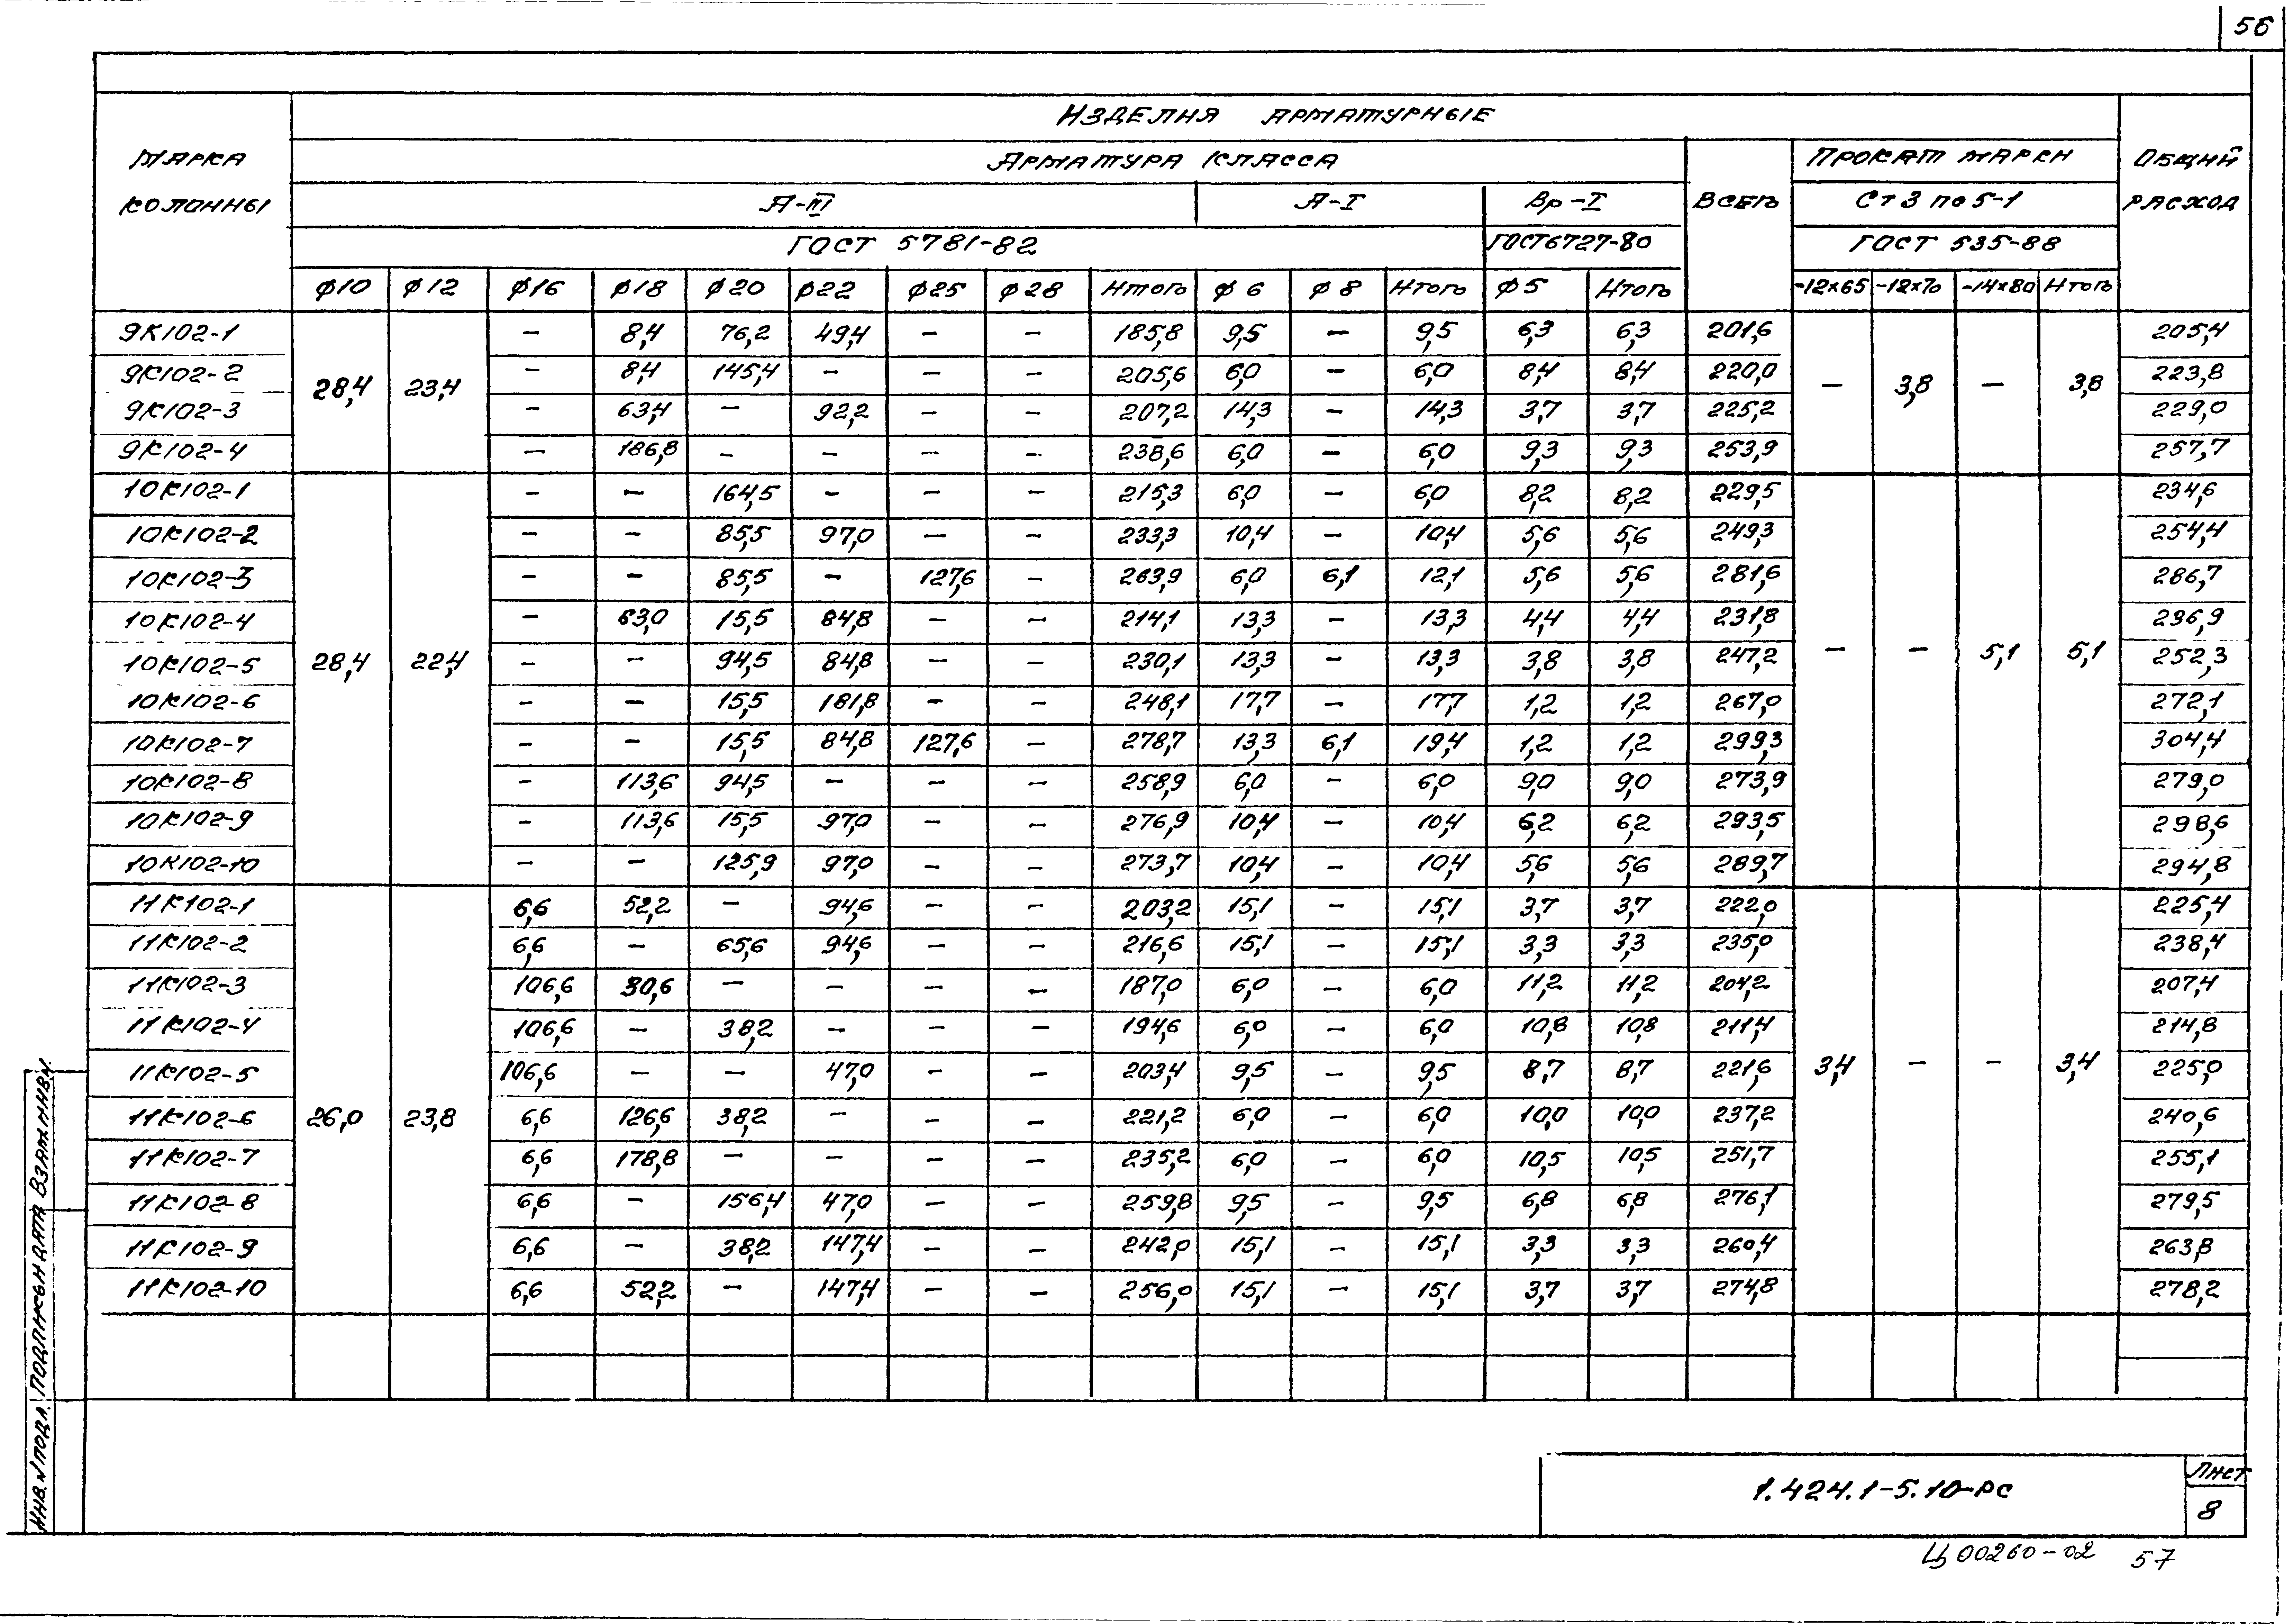 56
ИЗДЕЛИЯ АРМАТУРНЫЕ
МАРКА КОЛОННЫ
АРМАТУРА КЛАССА
ВСЕГО
ПРОКАТ МАРКИ
ОБЩИЙ РАСХОД
А-III А-I Вр-I Ст3 по5-1
ГОСТ 5781-82 ГОСТ6727-80 ГОСТ 535-88
ф10 ф12 ф16 ф18 ф20 ф22 ф25 ф28 Итого ф6 ф8 Итого ф5 Итого -12×65 -12×70 -14×80 Итого
9К102-1 - 8,4 76,2 49,4 - - 185,8 9,5 - 9,5 6,3 6,3 201,6 205,4
9К102-2 - 8,4 145,4 - - - 205,6 6,0 - 6,0 8,4 8,4 220,0 223,8
28,4 23,4 - 3,8 - 3,8
9К102-3 - 63,4 - 92,2 - - 207,2 14,3 - 14,3 3,7 3,7 225,2 229,0
9К102-4 - 186,8 - - - - 238,6 6,0 - 6,0 9,3 9,3 253,9 257,7
10К102-1 - - 164,5 - - - 215,3 6,0 - 6,0 8,2 8,2 229,5 234,6
10К102-2 - - 85,5 97,0 - - 233,3 10,4 - 10,4 5,6 5,6 249,3 254,4
10К102-3 - - 85,5 - 127,6 - 263,9 6,0 6,1 12,1 5,6 5,6 281,6 286,7
10К102-4 - 63,0 15,5 84,8 - - 214,1 13,3 - 13,3 4,4 4,4 231,8 236,9
10К102-5 28,4 22,4 - - 94,5 84,8 - - 230,1 13,3 - 13,3 3,8 3,8 247,2 - - 5,1 5,1 252,3
10К102-6 - - 15,5 181,8 - - 248,1 17,7 - 17,7 1,2 1,2 267,0 272,1
10К102-7 - - 15,5 84,8 127,6 - 278,7 13,3 6,1 19,4 1,2 1,2 299,3 304,4
10К102-8 - 113,6 94,5 - - - 258,9 6,0 - 6,0 9,0 9,0 273,9 279,0
10К102-9 - 113,6 15,5 97,0 - - 276,9 10,4 - 10,4 6,2 6,2 293,5 298,6
10К102-10 - - 125,9 97,0 - - 273,7 10,4 - 10,4 5,6 5,6 289,7 294,8
11К102-1 6,6 52,2 - 94,6 - - 203,2 15,1 - 15,1 3,7 3,7 222,0 225,4
11К102-2 6,6 - 65,6 94,6 - - 216,6 15,1 - 15,1 3,3 3,3 235,0 238,4
11К102-3 106,6 30,6 - - - - 187,0 6,0 - 6,0 11,2 11,2 204,2 207,4
11К102-4 106,6 - 38,2 - - - 194,6 6,0 - 6,0 10,8 10,8 211,4 214,8
11К102-5 106,6 - - 47,0 - - 203,4 9,5 - 9,5 8,7 8,7 221,6 3,4 - - 3,4 225,0
11К102-6 26,0 23,8 6,6 126,6 38,2 - - - 221,2 6,0 - 6,0 10,0 10,0 237,2 240,6
11К102-7 6,6 178,8 - - - - 235,2 6,0 - 6,0 10,5 10,5 251,7 255,1
11К102-8 6,6 - 156,4 47,0 - - 259,8 9,5 - 9,5 6,8 6,8 276,1 279,5
11К102-9 6,6 - 38,2 147,4 - - 242,0 15,1 - 15,1 3,3 3,3 260,4 263,8
11К102-10 6,6 52,2 - 147,4 - - 256,0 15,1 - 15,1 3,7 3,7 274,8 278,2
ИНВ.N ПОДЛ. ПОДПИСЬ И ДАТА ВЗАМ ИНВ.N
1.424.1-5.10-РС
Лист
8
Ц00260-02 57